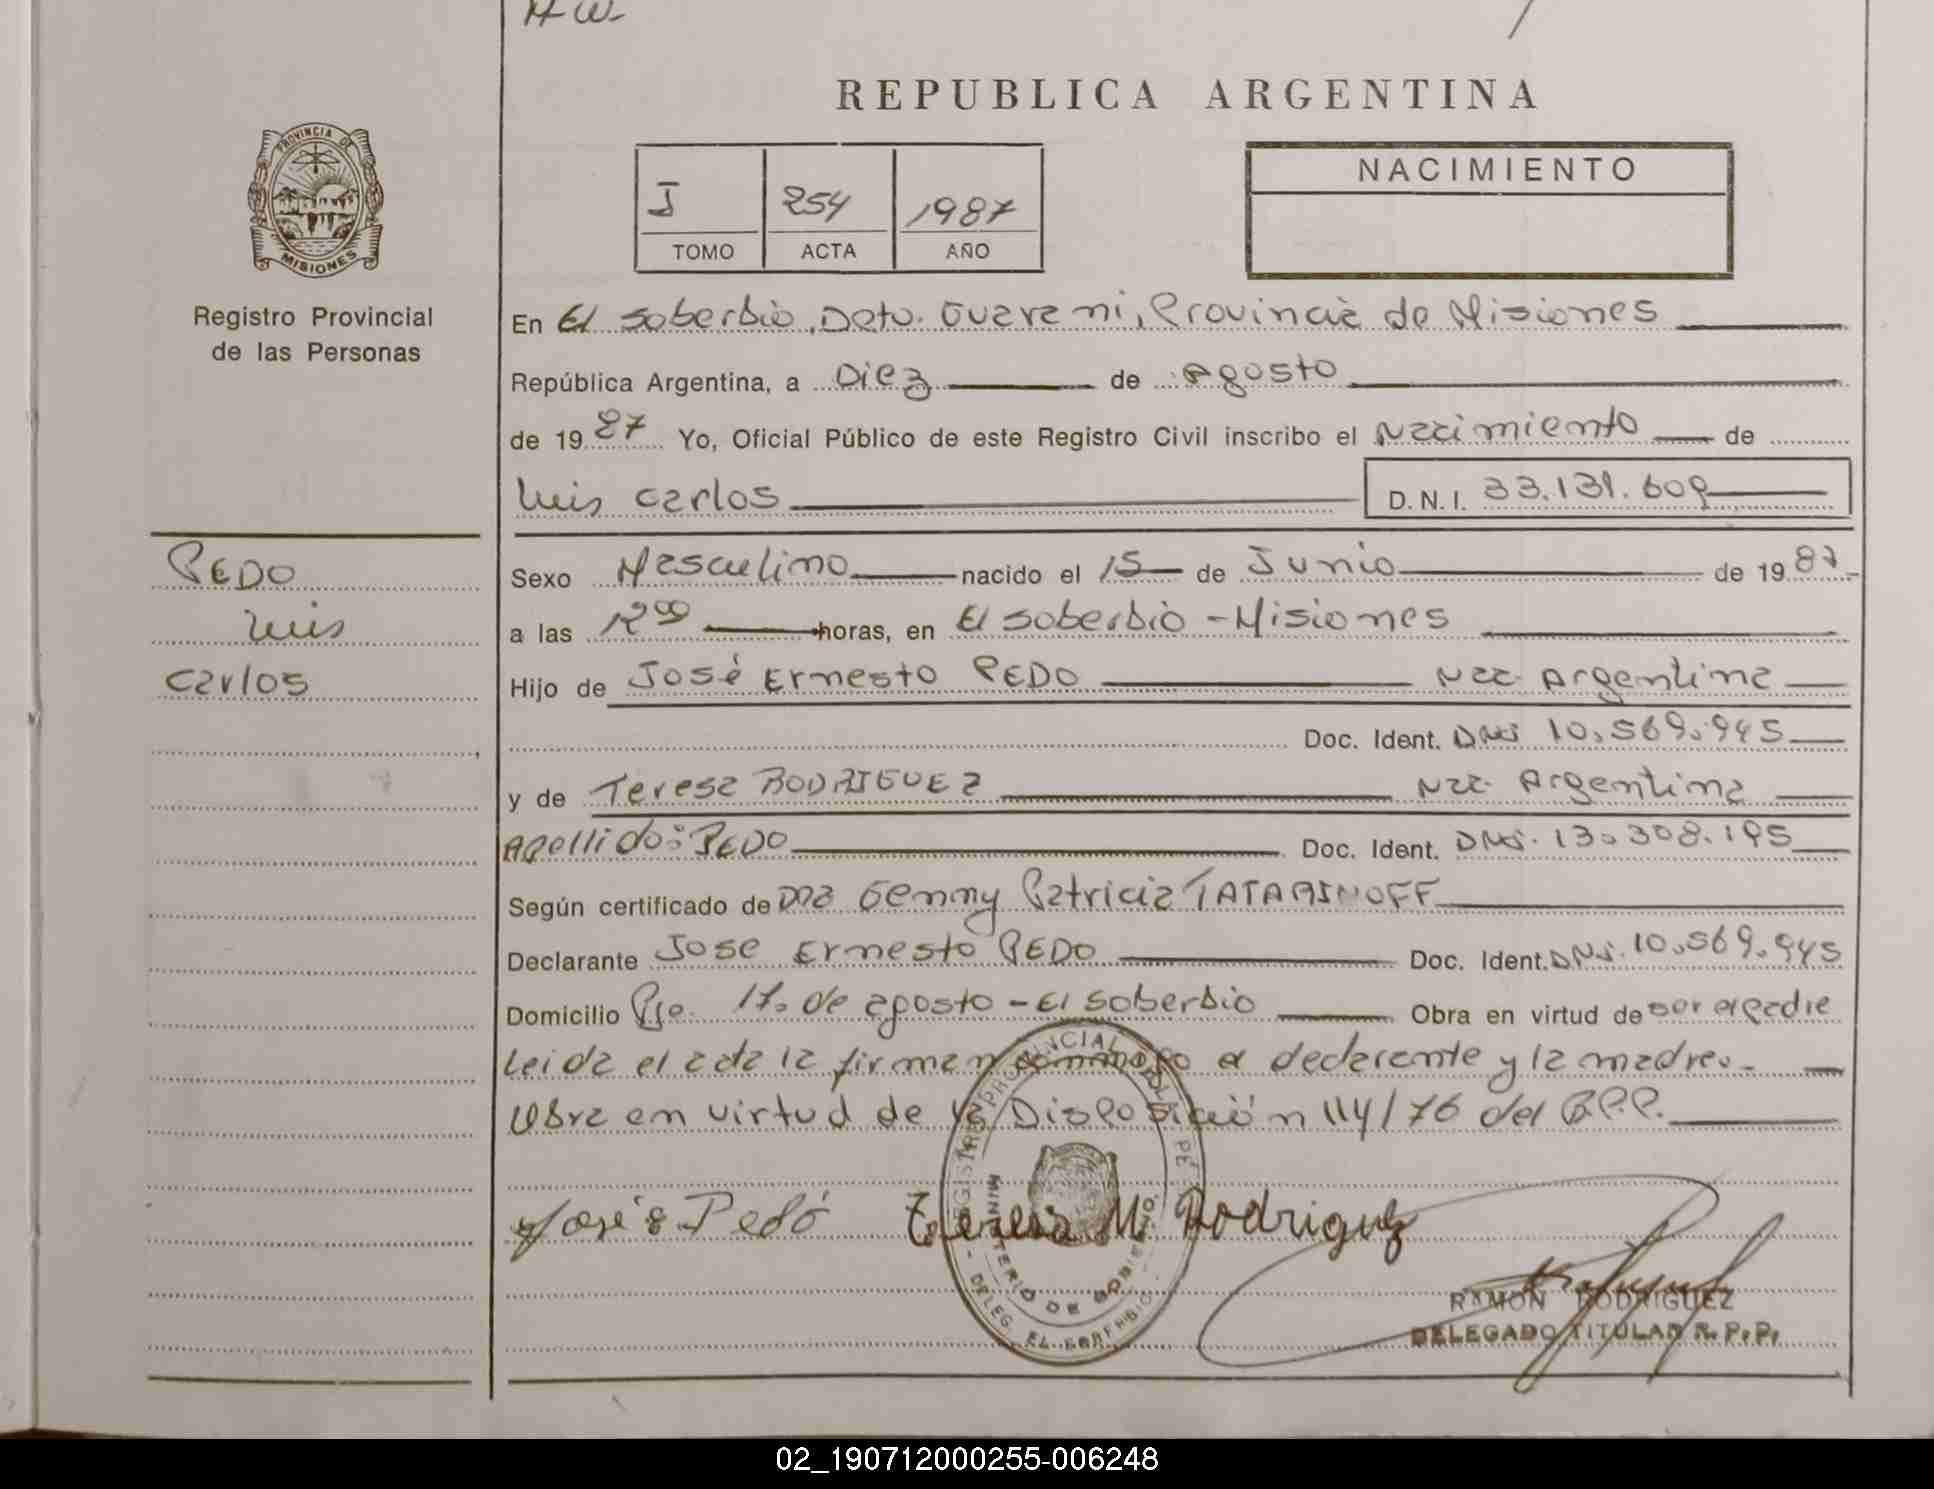 H W-
REPUBLICA ARGENTINA
PROVINCIA DE
MISIONES
Registro Provincial
de las Personas
I 254 1987
TOMO ACTA AÑO
NACIMIENTO
En El Soberbio, Dpto. Guarani, Provincia de Misiones
República Argentina, a Diez de Agosto
de 1987 Yo, Oficial Público de este Registro Civil inscribo el Nacimiento de
Luis Carlos D.N.I. 33.131.609
PEDO
Luis
Carlos
Sexo Masculino nacido el 15 de Junio de 1987
a las 12 00 horas, en El Soberbio - Misiones
Hijo de José Ernesto PEDO Nac. Argentina
Doc. Ident. DNI 10.569.945
y de Teresa RODRIGUEZ Nac. Argentina
Apellido: PEDO Doc. Ident. DNI. 13.308.195
Según certificado de Dra Genny Patricia TATARINOFF
Declarante Jose Ernesto PEDO Doc. Ident. DNI. 10.569.945
Domicilio Pje. 17. de agosto - El Soberbio Obra en virtud de ser el padre
Leida el acta la firman conmigo el declarante y la madre.-
Obra en virtud de la Disposición 114/76 del R.P.P.
José Pedó Teresa M. Rodriguez
REGISTRO PROVINCIAL DE LAS PE
MINISTERIO DE GOBIERNO
- DELEG. EL SOBERBIO -
RAMON RODRIGUEZ
DELEGADO TITULAR R.P.P.
02_190712000255-006248